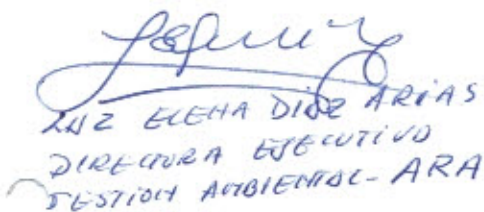 LUZ ELENA DIAZ ARIAS
DIRECTORA EJECUTIVO
GESTION AMBIENTAL - ARA